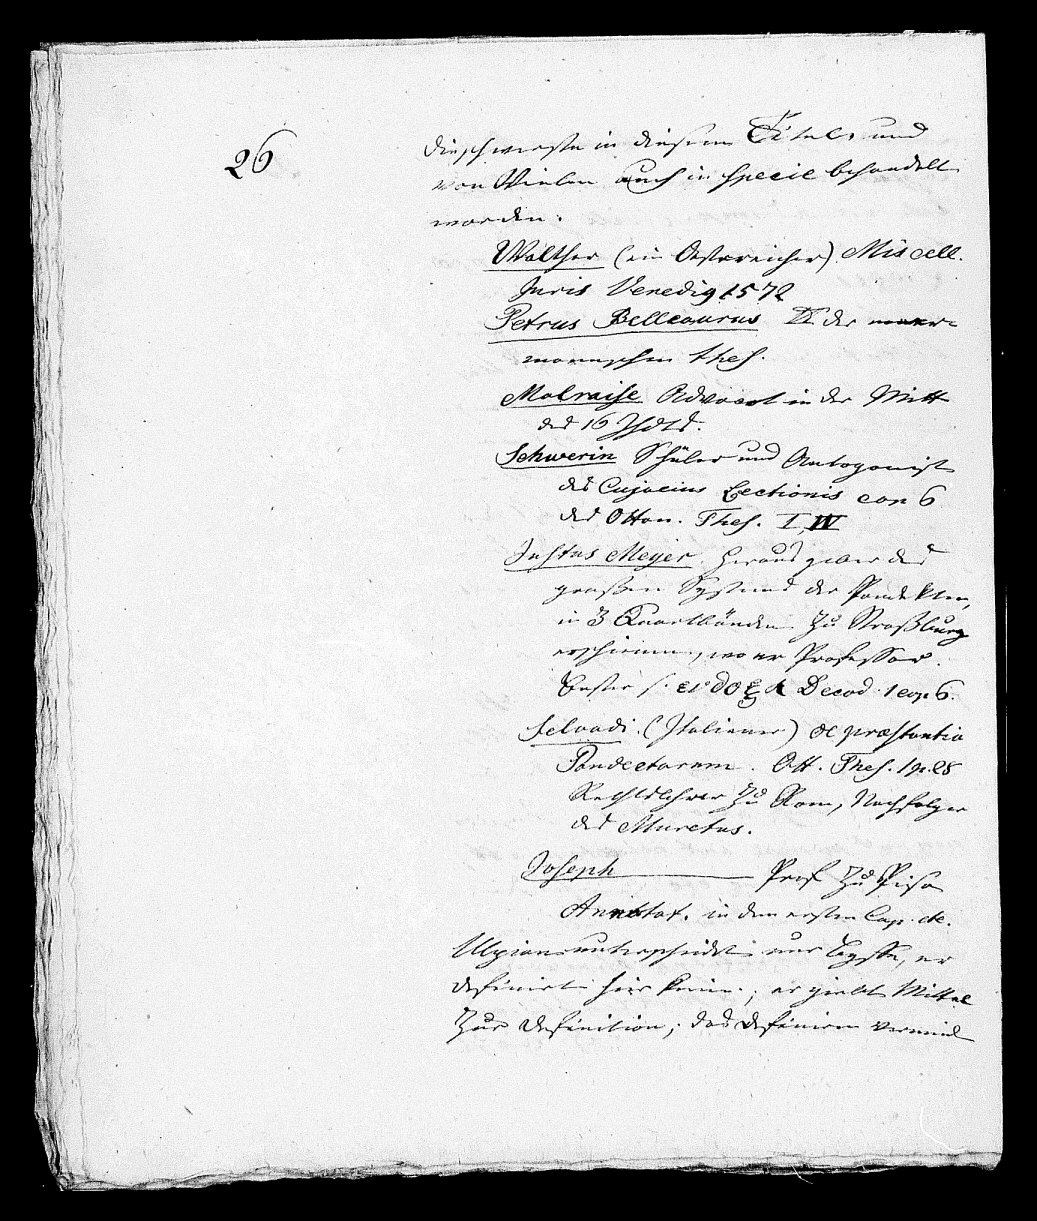 26
die schwerste in diesem Titel, und
von Vielen auch in specie behandelt
worden.
Walther (ein Oestreicher) Miscell.
Juris Venedig 1572
Petrus Bellcaurus II der meer-
mannschen thes.
Malraise Advocat in der Mitt
des 16 Jhdts.
Schwerin Schüler und Antagonist
des Cujacius Lectionis cap 6
des Otton. Thes. I, IV
Justus Meyer. Herausgeber des
großen Systems der Pandekten,
in 3 Quartbänden zu Straßburg
erschienen, wo er Professor.
Decad. 1 cap 6.
Selvadi. (Italiener) de præstantia
Pandectarum. Ott. Thes. 1 p. 28
Rechtslehrer zu Rom, Nachfolger
des Muretus.
Joseph ——— Prof zu Pisa
Annotat. in den ersten Cap. etc.
Ulpian unterscheidet nur Cysse, er
definirt hier keine; er giebt Mittel
zur Definition; das definiren vermied